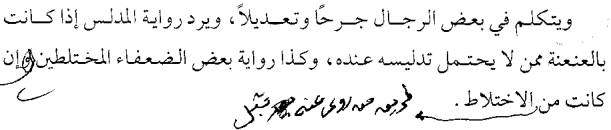 ويتكلم في بعض الرجال جرحًا وتعديلاً، ويرد رواية المدلس إذا كانت
بالعنعنة ممن لا يحتمل تدليسه عنده، وكذا رواية بعض الضعفاء المختلطين وإن
كانت من الاختلاط.
طريق من روى عنه قبل